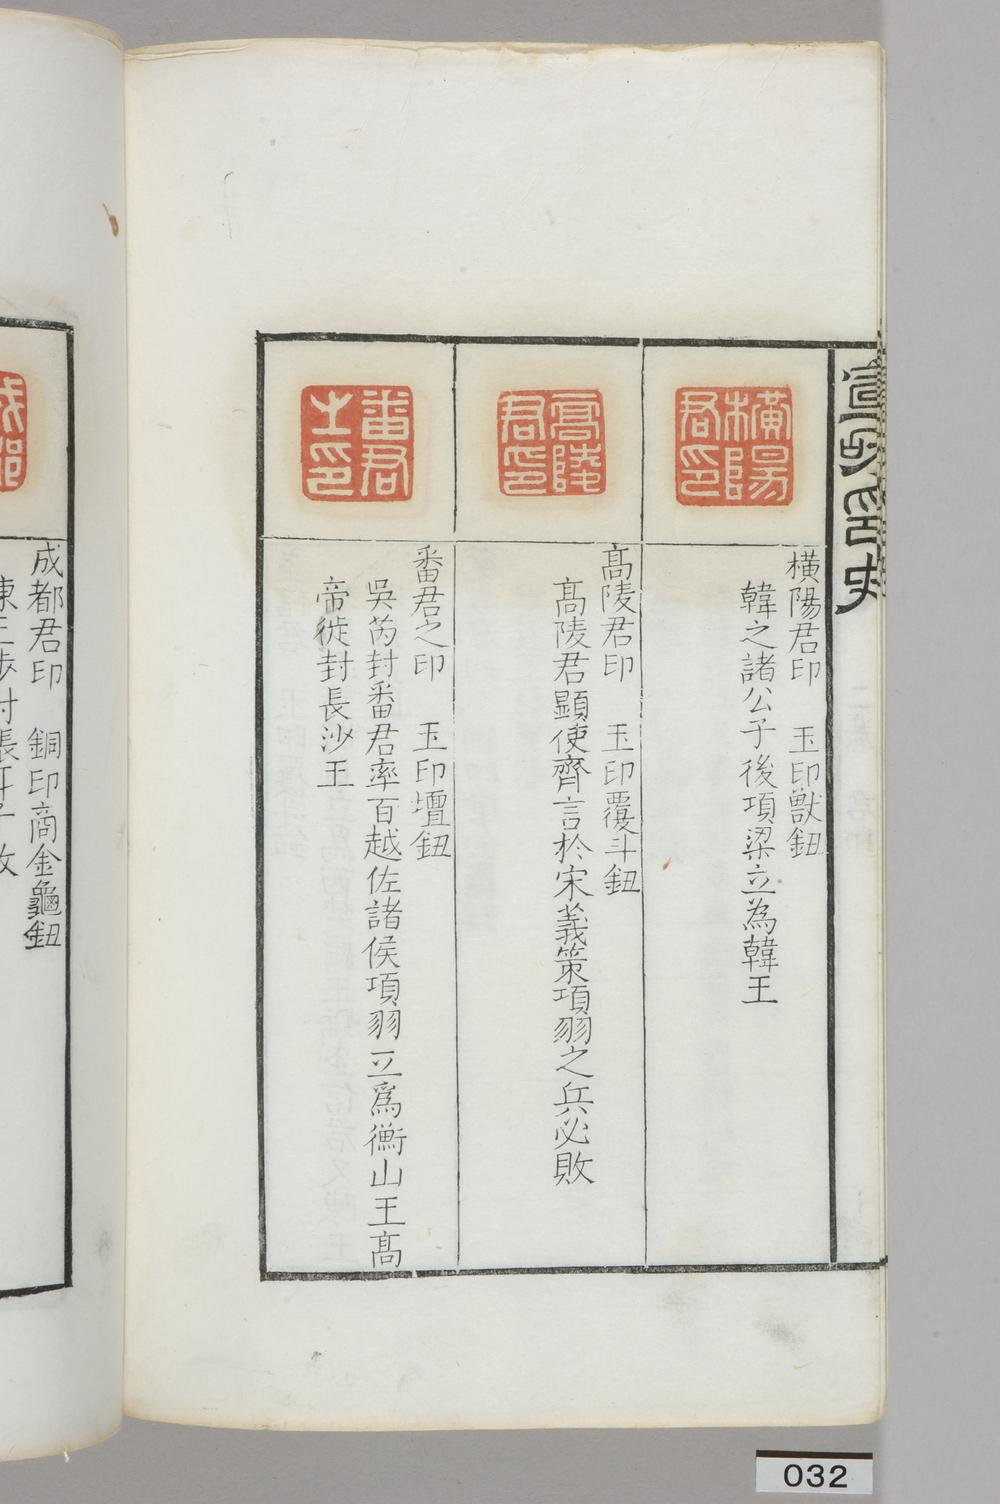 宣和印史
橫陽君印
橫陽君印　玉印獸鈕
韓之諸公子後項梁立為韓王
高陵君印
高陵君印　玉印覆斗鈕
高陵君顯使齊言於宋義策項羽之兵必敗
番君之印
番君之印　玉印壇鈕
吳芮封番君率百越佐諸侯項羽立爲衡山王高
帝徙封長沙王
成都
成都君印　銅印商金龜鈕
032